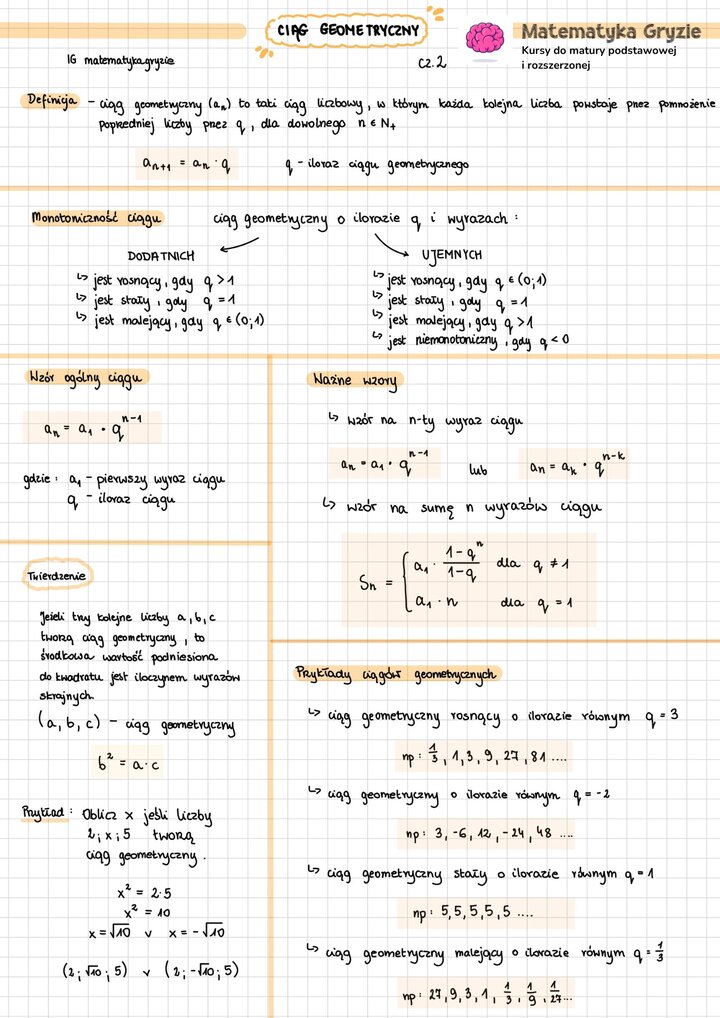 CIĄG GEOMETRYCZNY
Matematyka Gryzie
Kursy do matury podstawowej
i rozszerzonej
IG matematyka.gryzie
cz. 2
Definicja - ciąg geometryczny (aₙ) to taki ciąg liczbowy, w którym każda kolejna liczba powstaje przez pomnożenie
poprzedniej liczby przez q, dla dowolnego n ∈ N₊
aₙ₊₁ = aₙ · q
q - iloraz ciągu geometrycznego
Monotoniczność ciągu
ciąg geometryczny o ilorazie q i wyrazach :
DODATNICH
↳ jest rosnący, gdy q > 1
↳ jest stały, gdy q = 1
↳ jest malejący, gdy q ∈ (0;1)
UJEMNYCH
↳ jest rosnący, gdy q ∈ (0;1)
↳ jest stały, gdy q = 1
↳ jest malejący, gdy q > 1
↳ jest niemonotoniczny, gdy q < 0
Wzór ogólny ciągu
aₙ = a₁ · qⁿ⁻¹
gdzie : a₁ - pierwszy wyraz ciągu
q - iloraz ciągu
Twierdzenie
Jeżeli trzy kolejne liczby a, b, c
tworzą ciąg geometryczny, to
środkowa wartość podniesiona
do kwadratu jest iloczynem wyrazów
skrajnych.
(a, b, c) - ciąg geometryczny
b² = a·c
Przykład : Oblicz x jeśli liczby
2; x; 5 tworzą
ciąg geometryczny.
x² = 2·5
x² = 10
x = √10 v x = -√10
(2; √10; 5) v (2; -√10; 5)
Ważne wzory
↳ wzór na n-ty wyraz ciągu
aₙ = a₁ · qⁿ⁻¹ lub aₙ = aₖ · qⁿ⁻ᵏ
↳ wzór na sumę n wyrazów ciągu
Sₙ = { a₁ · (1-qⁿ)/(1-q) dla q ≠ 1
a₁ · n dla q = 1
Przykłady ciągów geometrycznych
↳ ciąg geometryczny rosnący o ilorazie równym q = 3
np: 1/3, 1, 3, 9, 27, 81 ....
↳ ciąg geometryczny o ilorazie równym q = -2
np: 3, -6, 12, -24, 48 ....
↳ ciąg geometryczny stały o ilorazie równym q = 1
np: 5, 5, 5, 5, 5 ....
↳ ciąg geometryczny malejący o ilorazie równym q = 1/3
np: 27, 9, 3, 1, 1/3, 1/9, 1/27...